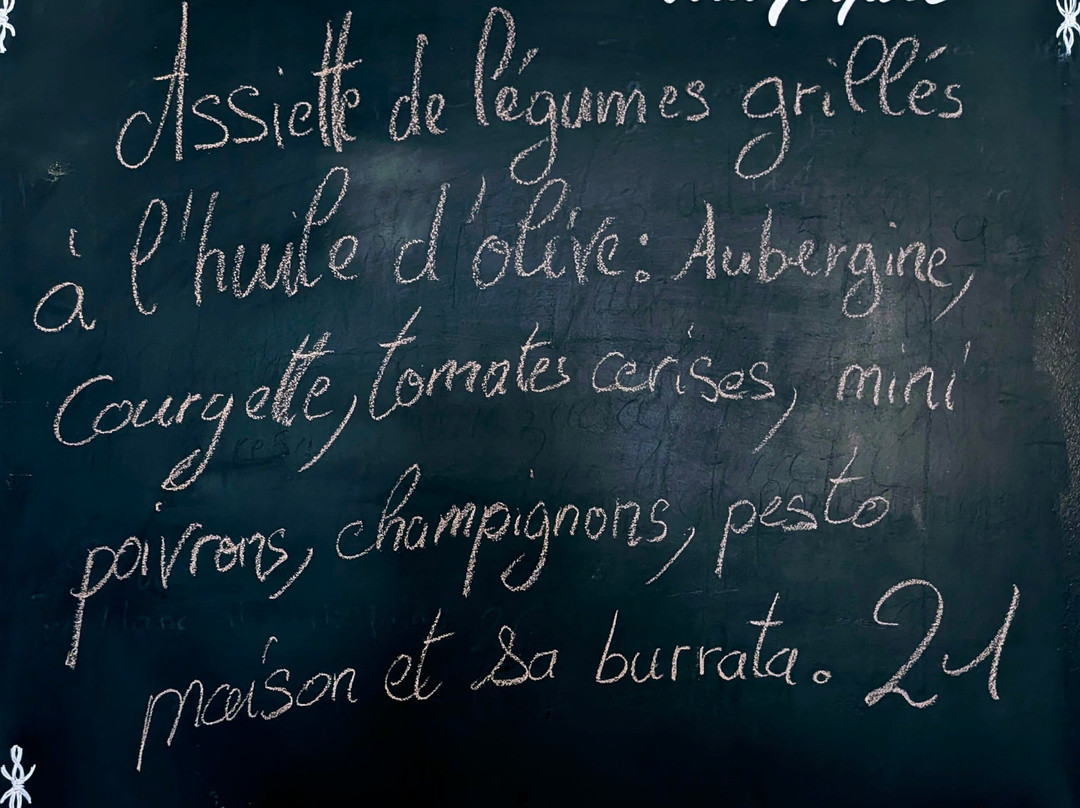 Assiette de légumes grillés
à l'huile d'olive : Aubergine,
Courgette, tomates cerises, mini
poivrons, champignons, pesto
maison et sa burrata. 21